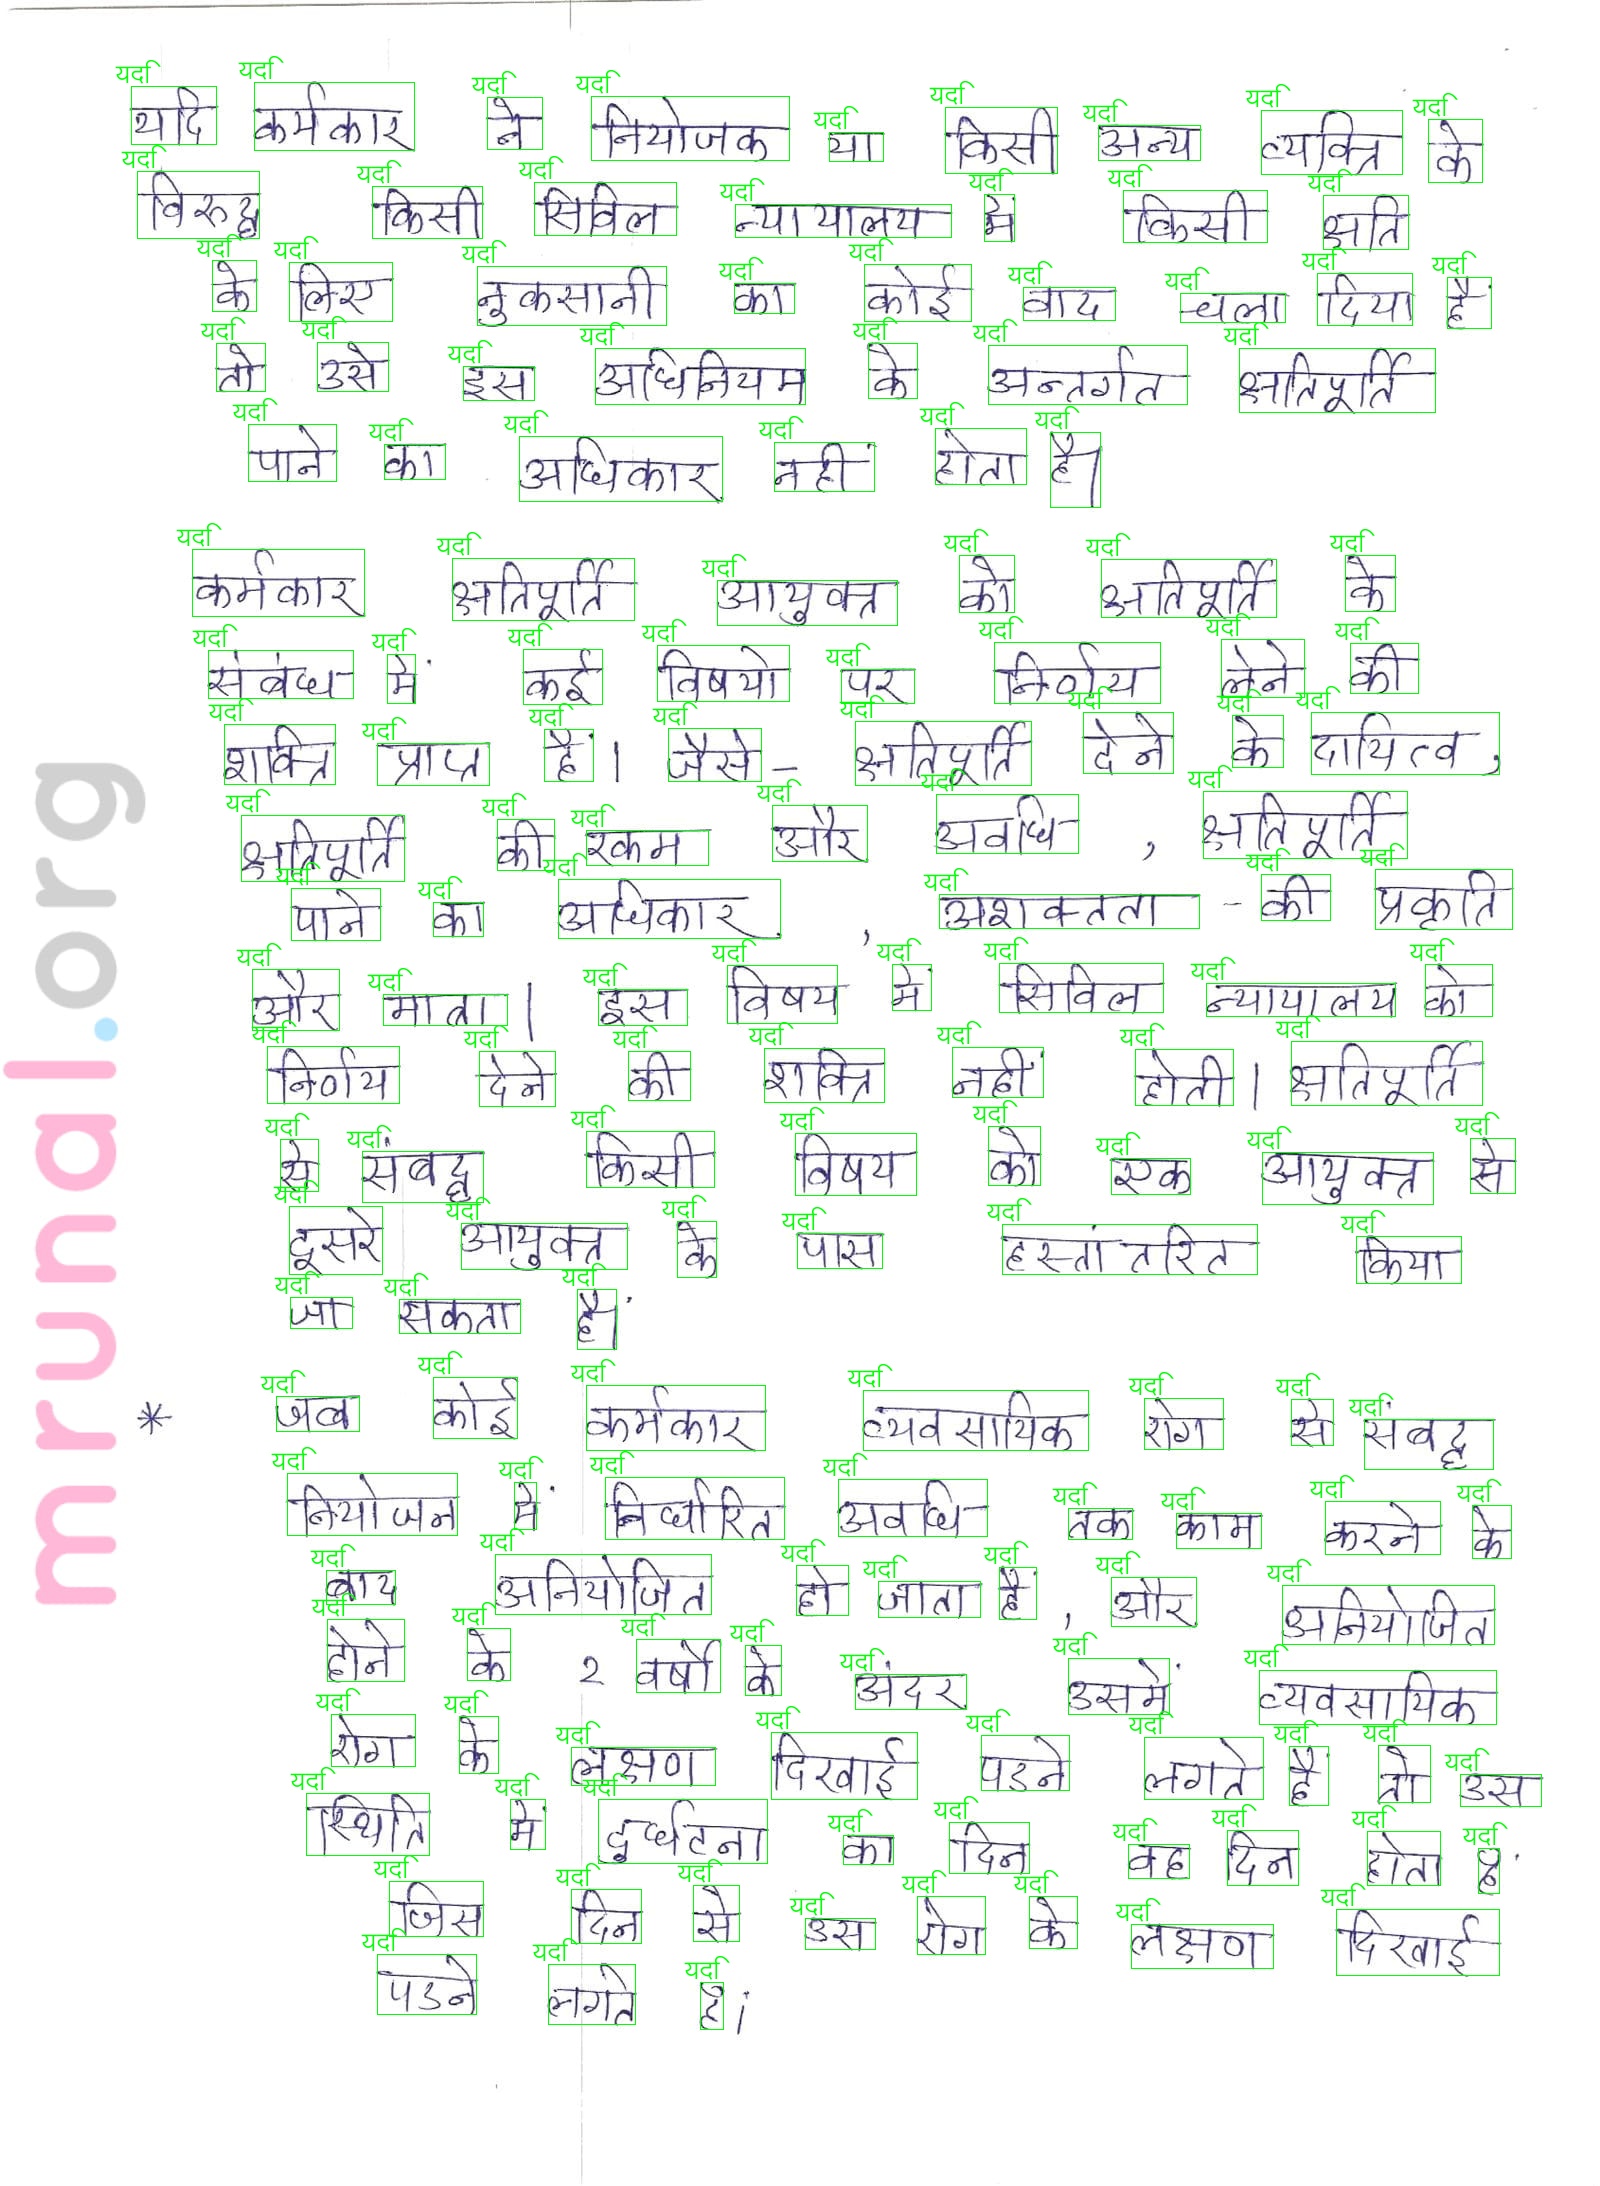 यदि कर्मकार ने नियोजक या किसी अन्य व्यक्ति के
विरुद्ध किसी सिविल न्यायालय में किसी क्षति
के लिए नुकसानी का कोई वाद चला दिया है
तो उसे इस अधिनियम के अन्तर्गत क्षतिपूर्ति
पाने का अधिकार नहीं होता है।
कर्मकार क्षतिपूर्ति आयुक्त को क्षतिपूर्ति के
संबंध में कई विषयो पर निर्णय लेने की
शक्ति प्राप्त है। जैसे - क्षतिपूर्ति देने के दायित्व,
क्षतिपूर्ति की रकम और अवधि, क्षतिपूर्ति
पाने का अधिकार, अशक्तता - की प्रकृति
और मात्रा। इस विषय में सिविल न्यायालय को
निर्णय देने की शक्ति नहीं होती। क्षतिपूर्ति
से संबद्ध किसी विषय को एक आयुक्त से
दूसरे आयुक्त के पास हस्तांतरित किया
जा सकता है।
* जब कोई कर्मकार व्यवसायिक रोग से संबद्ध
नियोजन में निर्धारित अवधि तक काम करने के
बाद अनियोजित हो जाता है, और अनियोजित
होने के २ वर्षो के अंदर उसमें व्यवसायिक
रोग के लक्षण दिखाई पडने लगते है तो उस
स्थिति में दुर्घटना का दिन वह दिन होता है
जिस दिन से उस रोग के लक्षण दिखाई
पडने लगते है।
mrunal.org